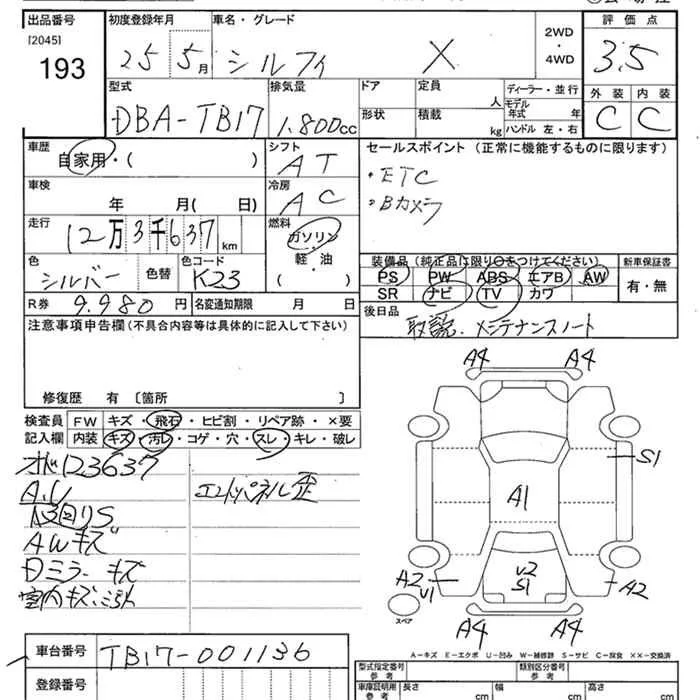 出品番号 初度登録年月 車名・グレード 2WD・4WD 評価点
[2045]
193 25 5月 シルフィ X 3.5
型式 排気量 ドア 定員 人 ディーラー・並行 外装 内装
DBA-TB17 1.800cc 形状 積載 kg モデル年式 年 ハンドル 左・右 C C
車歴 自家用・( ) シフト AT セールスポイント (正常に機能するものに限ります)
・ETC
・Bカメラ
車検 年 月( 日) 冷房 AC
走行 12万3千637km 燃料 ガソリン・軽・油・( )
色 シルバー 色替 色コード K23
装備品(純正品に限り○をつけてください) 新車保証書
PS PW ABS エアB AW 有・無
SR ナビ TV カワ
R券 9.980円 名変通知期限 月 日
後日品 取説.メンテナンスノート
注意事項申告欄(不具合内容等は具体的に記入して下さい)
修復歴 有 〔箇所
検査員記入欄 FW キズ・飛石・ヒビ割・リペア跡・×要
内装 キズ・汚レ・コゲ・穴・スレ・キレ・破レ
123637
A.U エンドパネル歪
下回りS
AWキズ
Dミラーキズ
A4 A4
S1
A1
U2
S1
A2
U1
A2
A4 A4
スペア
A-キズ E-エクボ U-凹み W-補修跡 S-サビ C-腐食 ××-交換済
車台番号 TB17-001136
登録番号
型式指定番号 参考 類別区分番号 参考
車庫証明用 参考 長さ cm 幅 cm 高さ cm